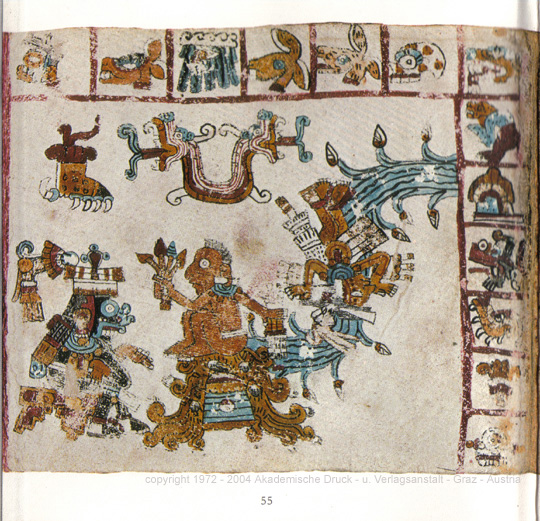 copyright 1972 - 2004 Akademische Druck - u. Verlagsanstalt - Graz - Austria
55